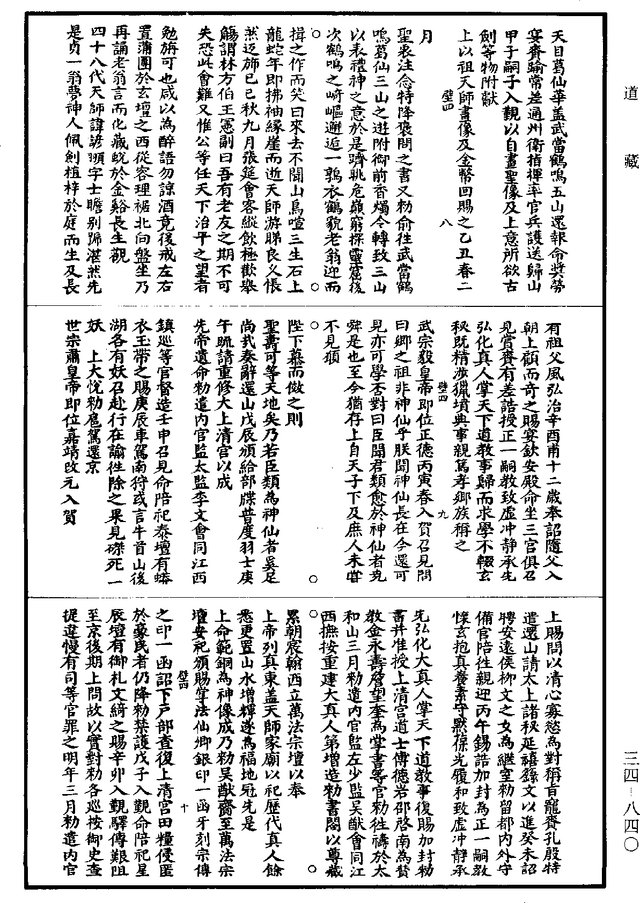 道藏
天目葛仙華盖武當鶴鳴五山還報命奬勞
宴賚踰常差通州衛指揮率官兵護送歸山
甲子嗣子入觀以自畫聖像及上意所欲古
劍等物附獻
上以祖天師畫像及金幣回賜之乙丑春二
壁四 八
月
聖表注念特降褒問之書又勑俞往武當鶴
鳴葛仙三山之逰附御前香燭令轉致三山
以表禮神之意於是躋危巔窮探靈窟後
次鶴鳴之崎嶇邂逅一鶉衣鶴貌老翁迎而
揖之作而笑曰來去不開山鳥喧三生石上
龍蛇年即拂袖緣崖而逝天師游睇良乂悵
然迈旆己巳秋九月張筵會客縱飲極歡舉
觴謂林方伯王憲副曰吾有老友之期不可
失恐此會難又惟公等任天下治平之望者
勉旃可也咸以為醉語勿諒酒竟後戒左右
置蒲團於玄壇之西從容理裾北向盤坐乃
再誦老翁言而化藏蜕於金谿長生觀
四十八代天師諱諺頨字士瞻别號湛然先
是貞一翁夢神人佩劍植梓於庭而生及長
有祖父風弘治辛酉甫十二歲奉詔隨父入
朝上顧而竒之賜宴欽安殿命坐三官俱召
見賞賚有差誥授正一嗣教致虛冲静承先
弘化真人掌天下道教事歸而求學不輟玄
秘既精涉獵墳典事親篤孝鄉族稱之
壁四 九
武宗毅皇帝即位正德丙寅春入賀召見問
曰卿之祖非神仙乎朕聞神仙長在今還可
見亦可學否對曰臣聞君類愈於神仙者堯
舜是也至今猶存上自天子下及庶人未甞
不見願
陛下慕而倣之則
聖壽可等天地矣乃若臣類為神仙者奚足
尚哉奏辭還山戊辰頒給部牒普度羽士庚
午疏請重修大上清宫以成
先帝遺命勑遣内官監太監李文會同江西
鎮廵等官督造壬申召見命陪祀泰壇有蟒
衣玉帶之賜庚辰車駕南狩或言牛首山後
湖各有妖召赴行在諭徃除之果見磔死一
妖　上大悦勑扈駕還京
世宗肅皇帝即位嘉靖改元入賀
上賜問以清心寡慾為對稱旨寵賚孔殷特
遣還山請太上諸秘延禧籙文以進癸未詔
聘安遠侯柳文之女為繼室勑留都内外守
備官陪徃親迎丙午錫誥加封為正一嗣教
懷玄抱真養素守默葆光履和致虛冲静承
先弘化大真人掌天下道教事復賜加封勑
書并惟授上清宫道士傅德岩邵啓南為贊
教金永壽詹望奎為掌書等官勑徃禱於太
和山三月勑遣内官監左少監吴猷會同江
西撫按重建大真人第增造勑書閣以尊藏
累朝宸翰西立萬法宗壇以奉
上帝列真東盖天師家廟以祀歷代真人餘
悉更置山水增輝遂為福地冠先是
上命範銅為神像成乃勑吴猷齎至萬法宗
壇安祀頒賜掌法仙卿銀印一函牙刻宗傳
壁四 十
之印一函詔下户部查復上清宫田糧侵匿
於豪民者仍降勑禁護戊子入觀命陪祀星
辰壇有御札文綺之賜辛卯入觀驛傳艱阻
至京後期上問故以實對勑各廵按御史查
提違慢有司等官罪之明年三月勑遣内官
三四—八四〇